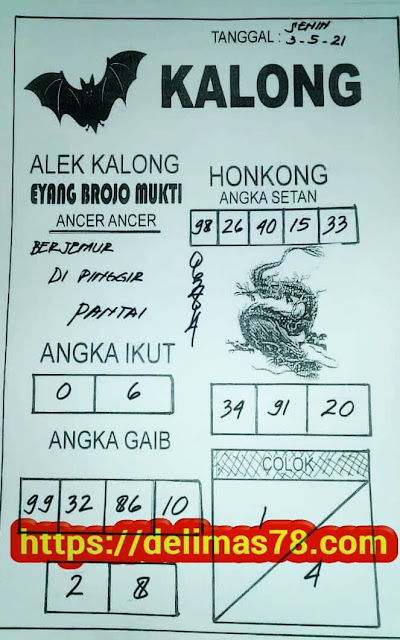 TANGGAL : SENIN
3-5-21
KALONG
ALEK KALONG
EYANG BROJO MUKTI
ANCER ANCER
BERJEMUR
DI PINGGIR
PANTAI
HONKONG
ANGKA SETAN
98 26 40 15 33
ANGKA IKUT
0 6
34 91 20
ANGKA GAIB
99 32 86 10
COLOK
1
4
https://delimas78.com
2 8